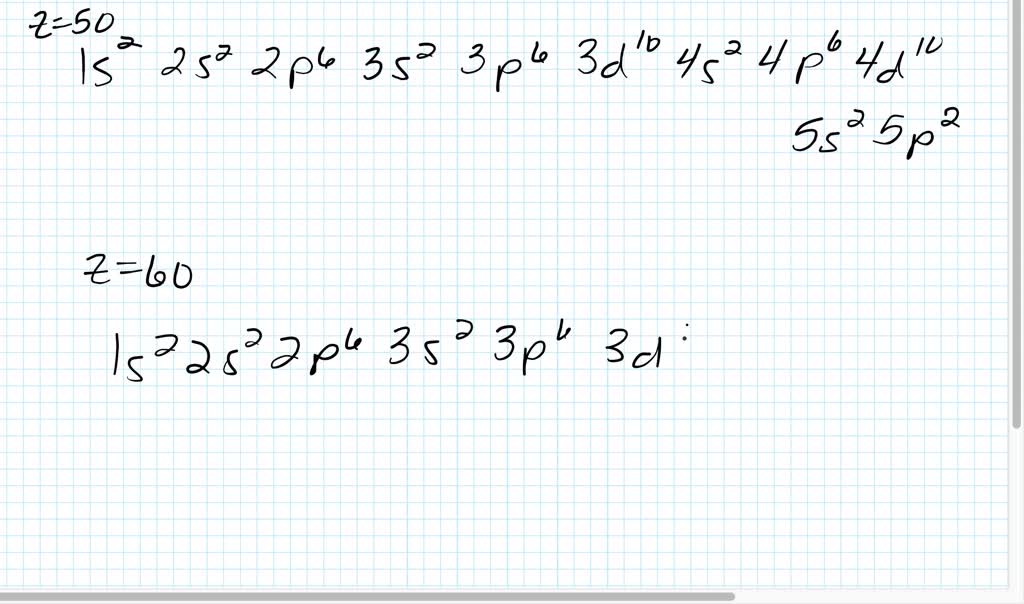 z=50
1s² 2s² 2p⁶ 3s² 3p⁶ 3d¹⁰ 4s² 4p⁶ 4d¹⁰
5s² 5p²
z=60
1s² 2s² 2p⁶ 3s² 3p⁶ 3d